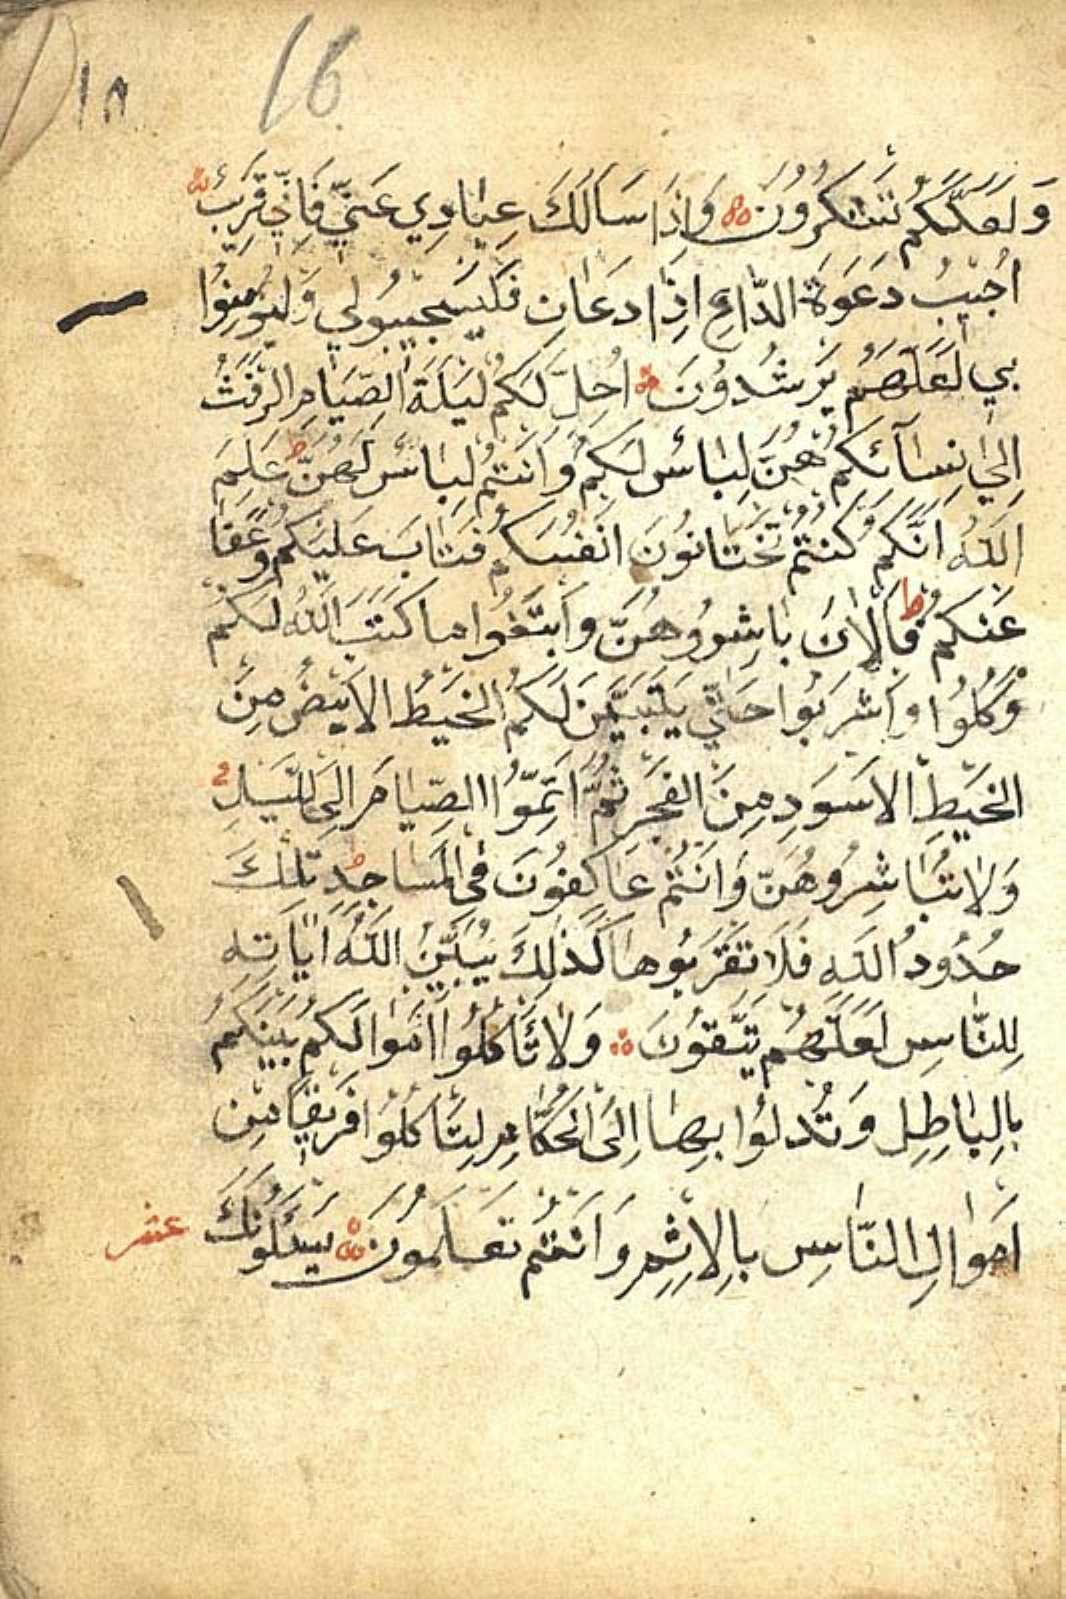 ١٨ 16
وَلَعَلَّكُمْ تَشْكُرُونَ وَاِذَا سَاَلَكَ عِبَادِي عَنّٖي فَاِنّٖي قَرٖيبٌ
اُجٖيبُ دَعْوَةَ الدَّاعِ اِذَا دَعَانِ فَلْيَسْتَجٖيبُولٖي وَلْيُؤْمِنُوا
بٖي لَعَلَّهُمْ يَرْشُدُونَ اُحِلَّ لَكُمْ لَيْلَةَ الصِّيَامِ الرَّفَثُ
اِلٰي نِسَآئِكُمْ هُنَّ لِبَاسٌ لَكُمْ وَاَنْتُمْ لِبَاسٌ لَهُنَّ ط عَلِمَ
اللّٰهُ اَنَّكُمْ كُنْتُمْ تَخْتَانُونَ اَنْفُسَكُمْ فَتَابَ عَلَيْكُمْ وَعَفَا
عَنْكُمْ ط فَالْاٰنَ بَاشِرُوهُنَّ وَابْتَغُوا مَا كَتَبَ اللّٰهُ لَكُمْ
وَكُلُوا وَاشْرَبُوا حَتّٰي يَتَبَيَّنَ لَكُمُ الْخَيْطُ الْاَبْيَضُ مِنَ
الْخَيْطِ الْاَسْوَدِ مِنَ الْفَجْرِ ثُمَّ اَتِمُّوا الصِّيَامَ اِلَي الَّيْلِ
وَلَا تُبَاشِرُوهُنَّ وَاَنْتُمْ عَاكِفُونَ فِي الْمَسَاجِدِ ط تِلْكَ
حُدُودُ اللّٰهِ فَلَا تَقْرَبُوهَا كَذٰلِكَ يُبَيِّنُ اللّٰهُ اٰيَاتِهٖ
لِلنَّاسِ لَعَلَّهُمْ يَتَّقُونَ وَلَا تَاْكُلُوا اَمْوَالَكُمْ بَيْنَكُمْ
بِالْبَاطِلِ وَتُدْلُوا بِهَا اِلَي الْحُكَّامِ لِتَاْكُلُوا فَرٖيقًا مِنْ
اَمْوَالِ النَّاسِ بِالْاِثْمِ وَاَنْتُمْ تَعْلَمُونَ يَسْئَلُونَكَ عشر